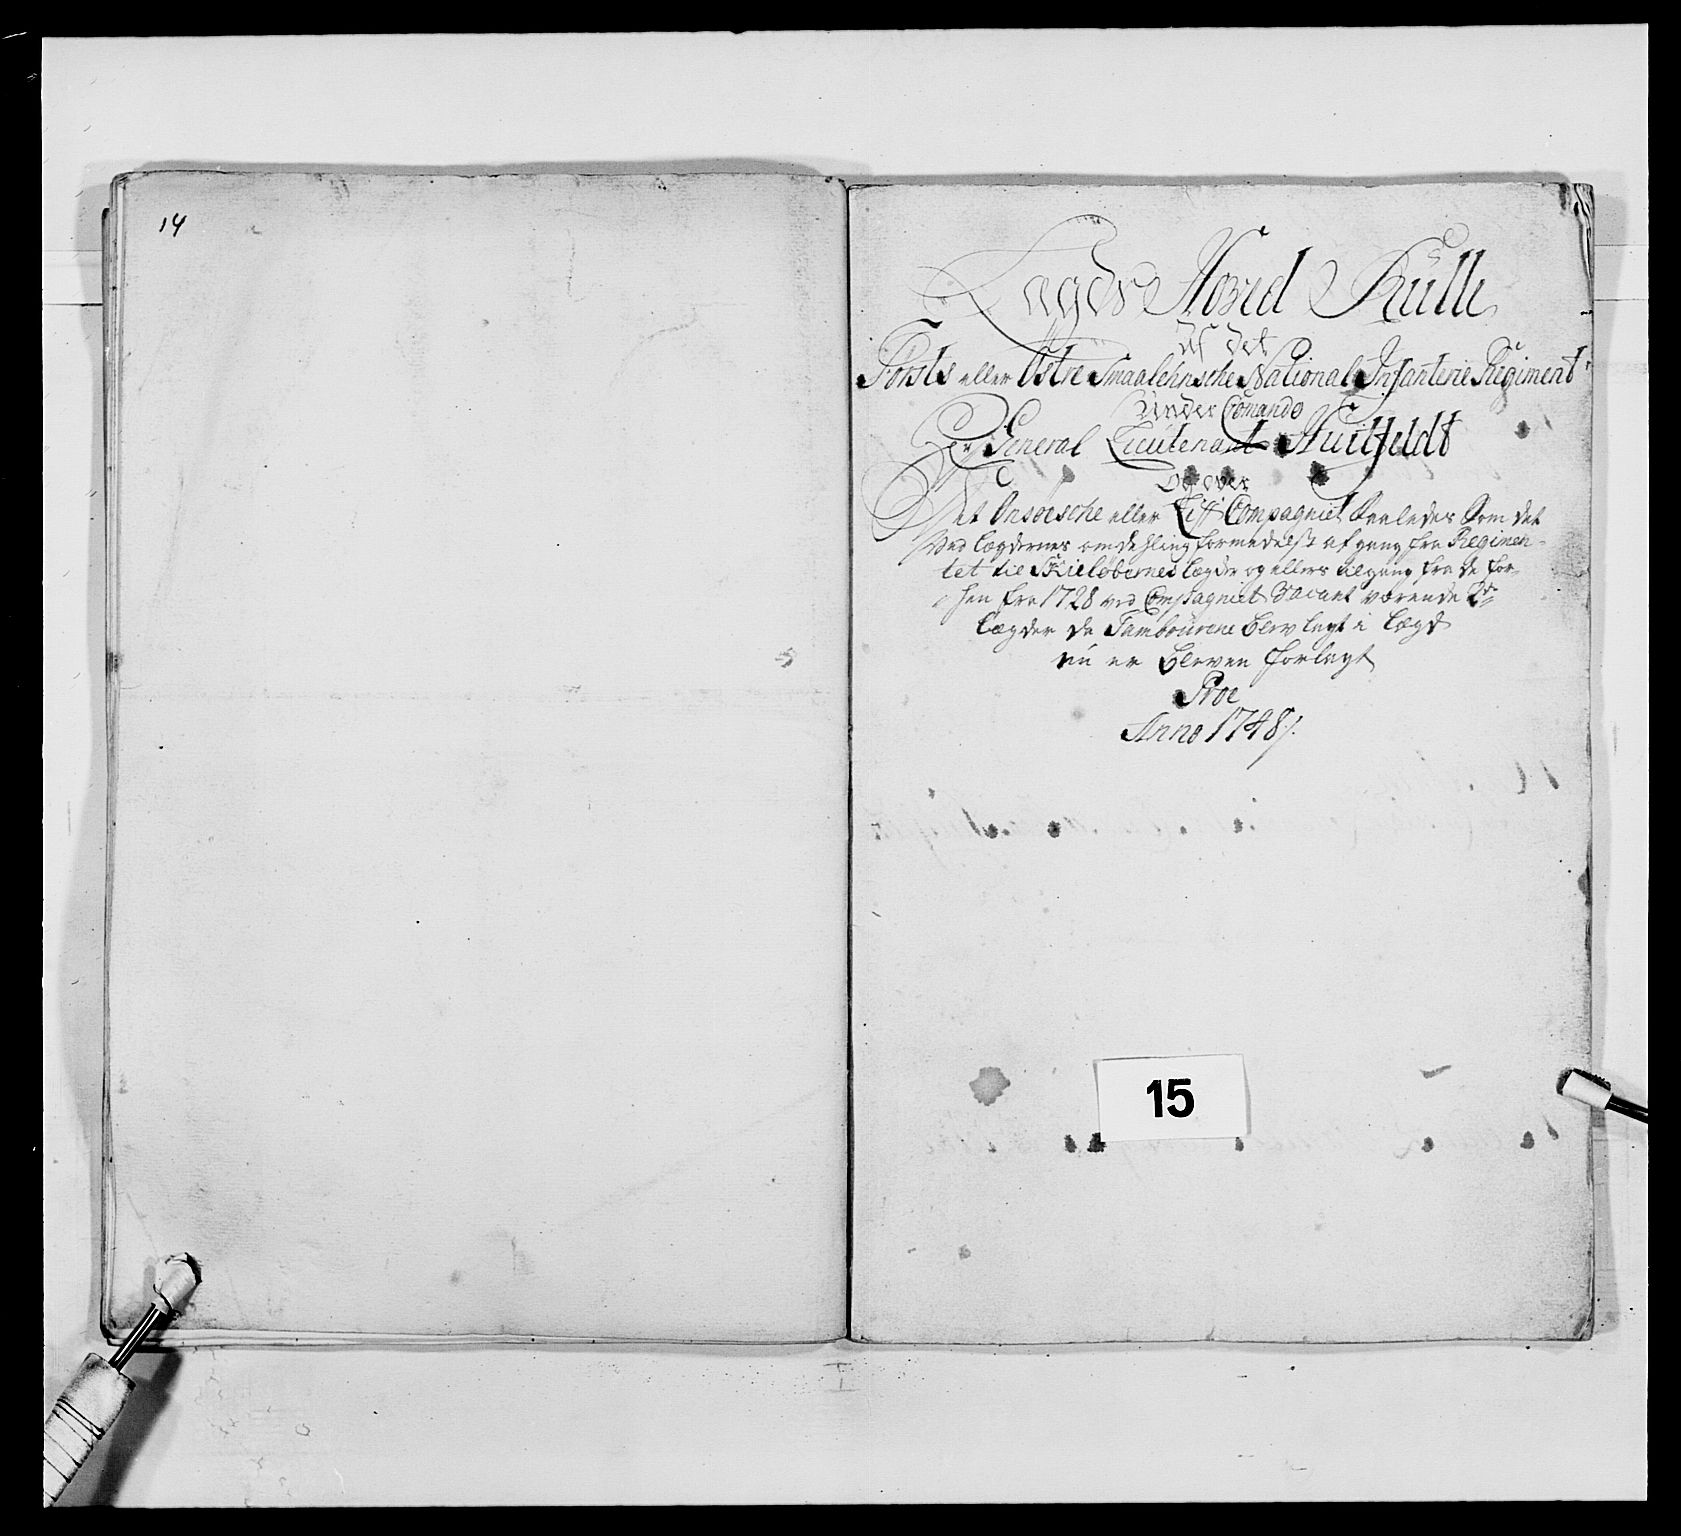 14
Lægds Hoved Rulle
af det
Førsts eller Østre Smaalehnsche National Infanterie Regiment
Under Comando
Hr General Lieutenant Huitfeldt
og over
Det Onsøesche eller Liff Compagniet saaledes som det
ved lægdernes omdehling formedelst afgang fra Regimen-
tet til Skieløbernes lægder og ellers tilgang fra de for-
hen fra 1728 ved Compagniet vacant værende
lægder de Tambourene blev lagt i lægd
nu er bleven forlagt
Proe
Anno 1748/.
15